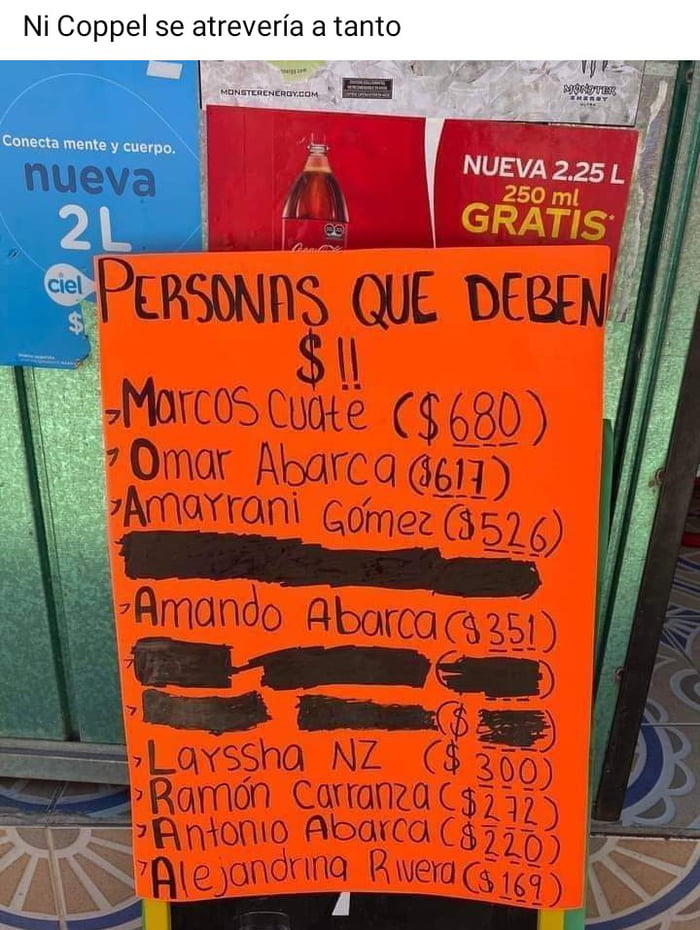 Ni Coppel se atrevería a tanto
MONSTERENERGY.COM
MONSTER
ENERGY
Conecta mente y cuerpo.
nueva
2L
ciel
$
NUEVA 2.25 L
250 ml
GRATIS*
PERSONAS QUE DEBEN
$!!
Marcos Cuate ($680)
Omar Abarca ($617)
Amayrani Gómez ($526)
Amando Abarca ($351)
($
Layssha NZ ($300)
Ramón Carranza ($272)
Antonio Abarca ($220)
Alejandrina Rivera ($169)